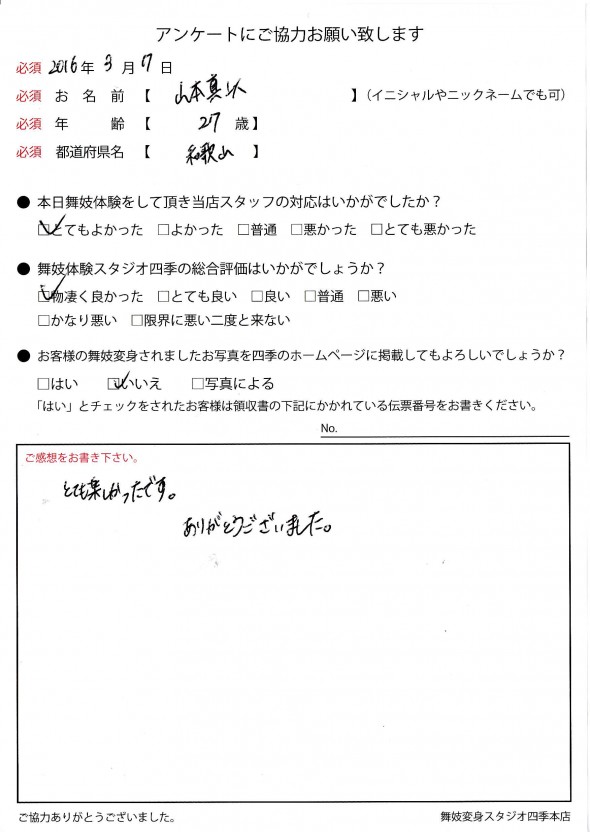 アンケートにご協力お願い致します
必須 2016年 3月 7日
必須 お名前【 山本真以 】（イニシャルやニックネームでも可）
必須 年齢【 27歳】
必須 都道府県名【 和歌山 】
● 本日舞妓体験をして頂き当店スタッフの対応はいかがでしたか？
□とてもよかった □よかった □普通 □悪かった □とても悪かった
● 舞妓体験スタジオ四季の総合評価はいかがでしょうか？
□物凄く良かった □とても良い □良い □普通 □悪い
□かなり悪い □限界に悪い二度と来ない
● お客様の舞妓変身されましたお写真を四季のホームページに掲載してもよろしいでしょうか？
□はい □いいえ □写真による
「はい」とチェックをされたお客様は領収書の下記にかかれている伝票番号をお書きください。
No.
ご感想をお書き下さい。
とても楽しかったです。
ありがとうございました。
ご協力ありがとうございました。 舞妓変身スタジオ四季本店